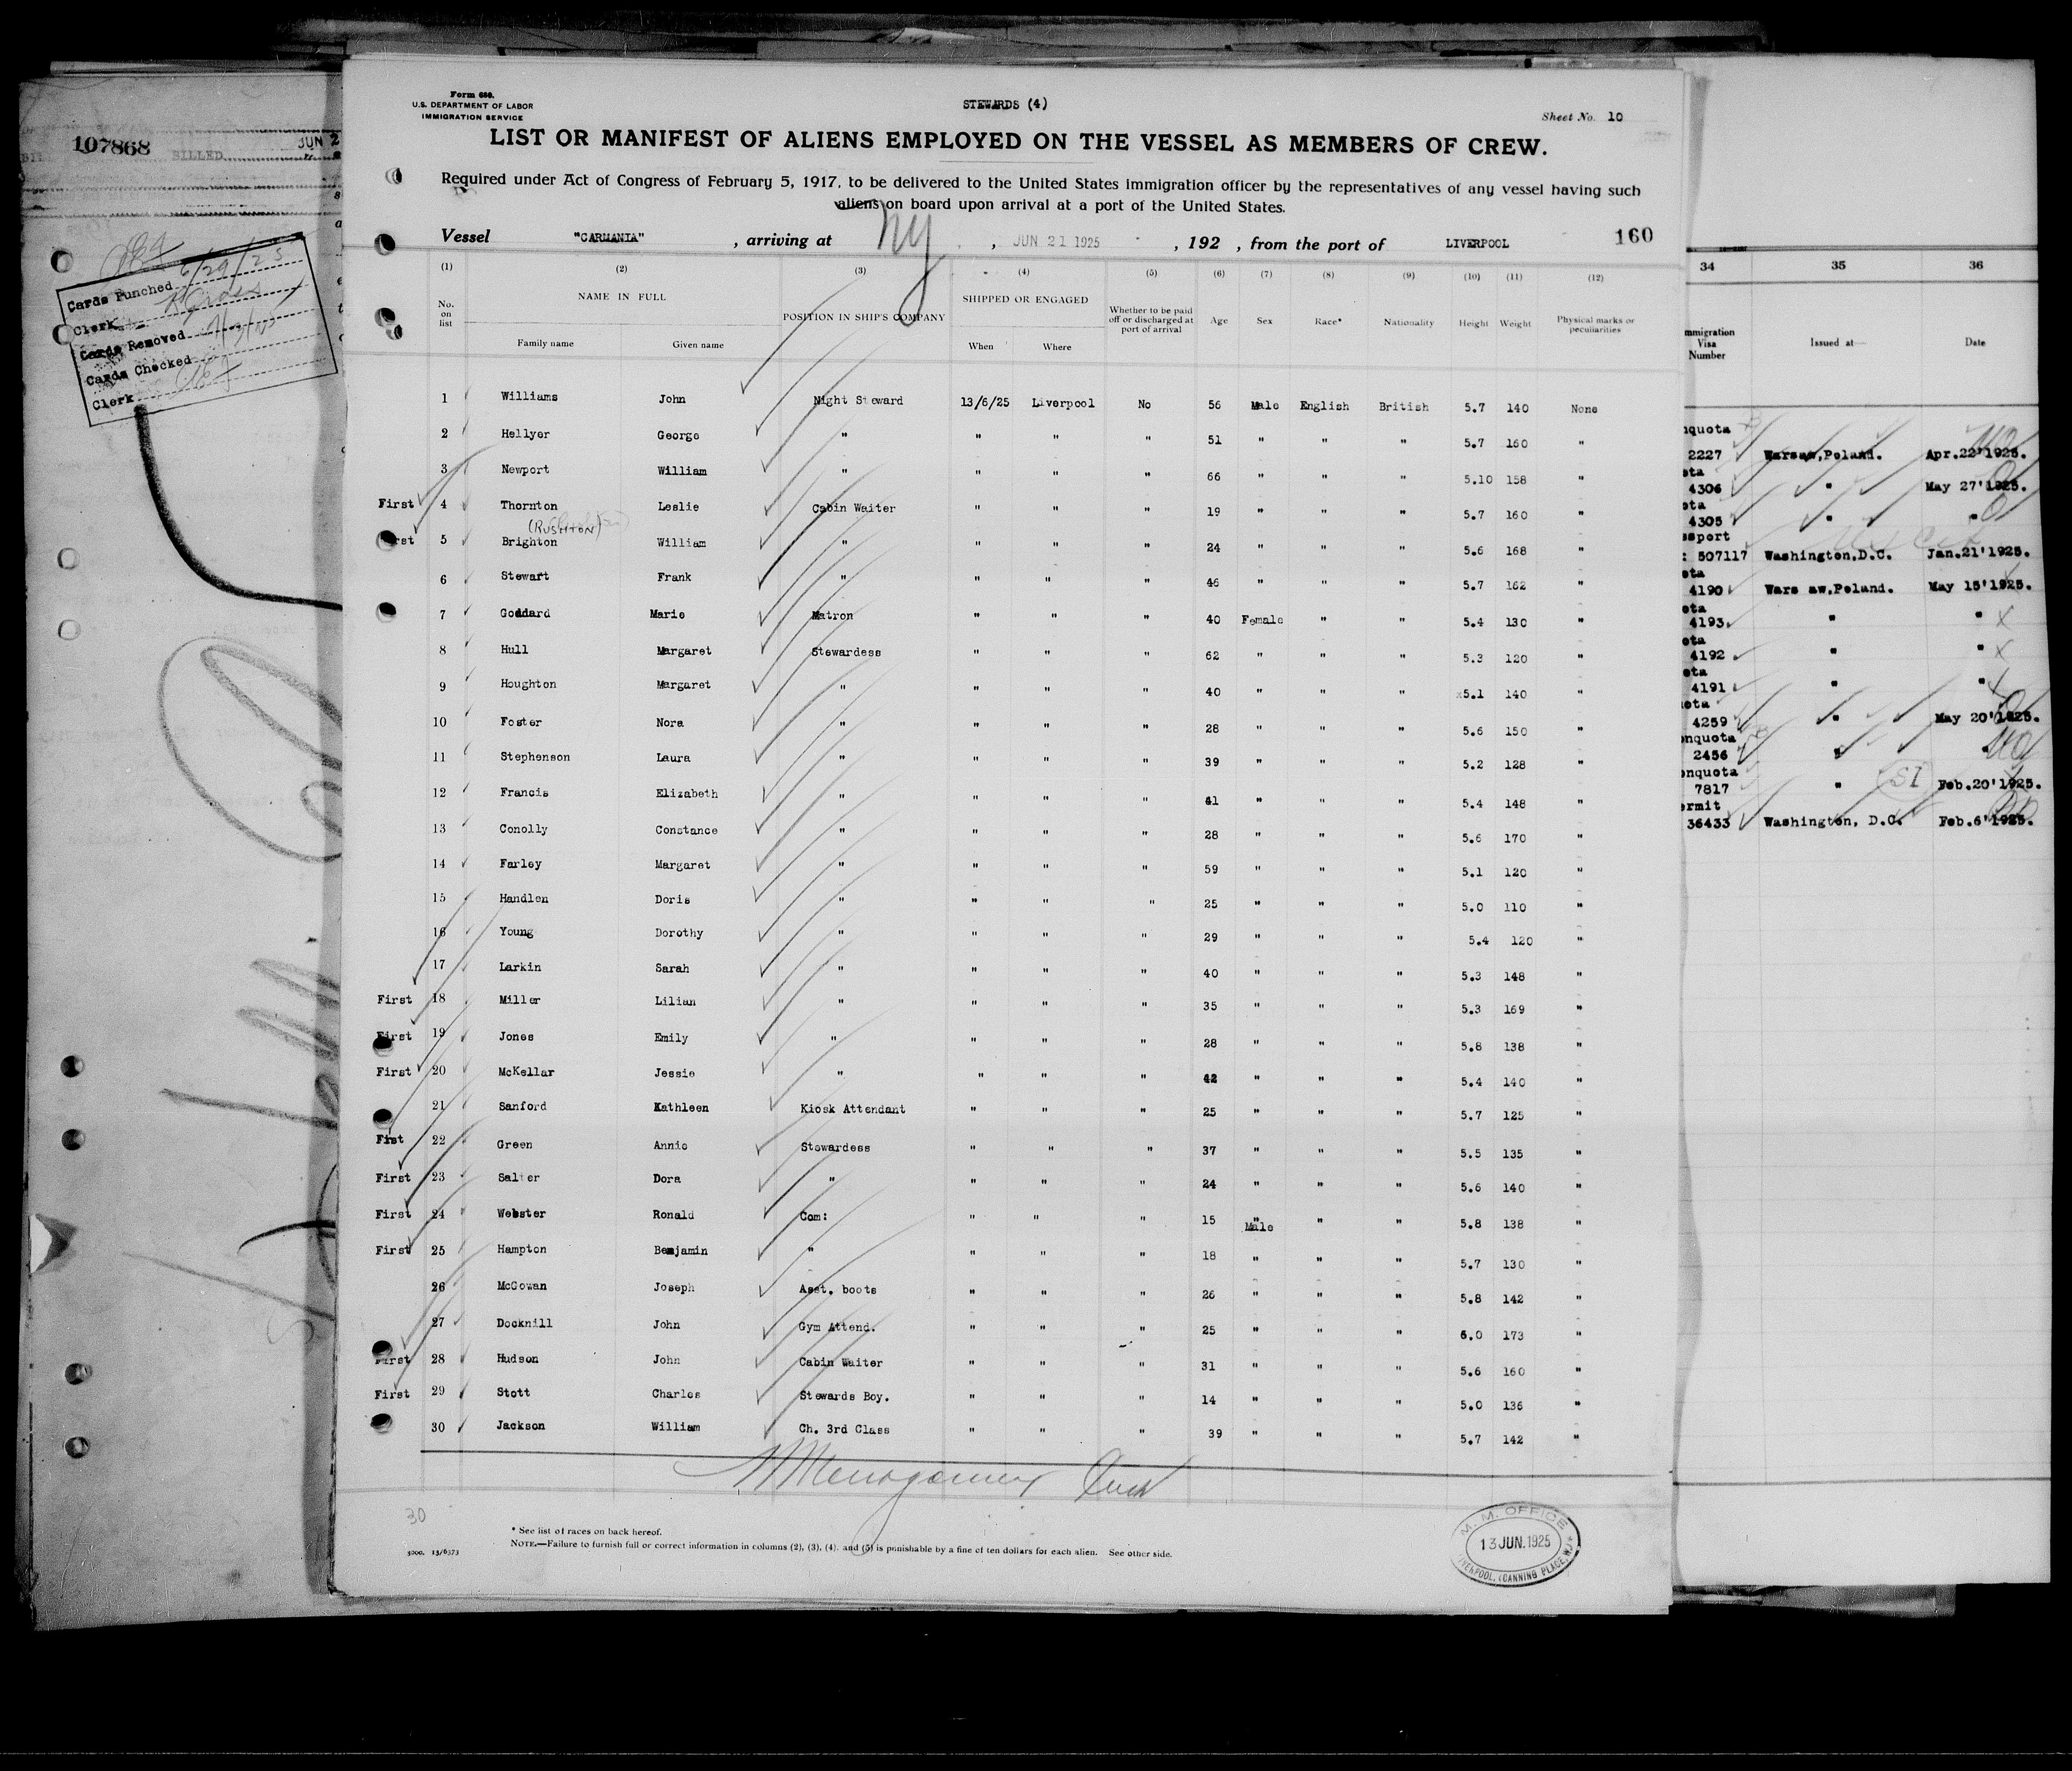 Form 680.
U.S. DEPARTMENT OF LABOR
IMMIGRATION SERVICE
STEWARDS (4)
Sheet No. 10
LIST OR MANIFEST OF ALIENS EMPLOYED ON THE VESSEL AS MEMBERS OF CREW.
Required under Act of Congress of February 5, 1917, to be delivered to the United States immigration officer by the representatives of any vessel having such
aliens on board upon arrival at a port of the United States.
Vessel "CARMANIA" , arriving at NY , JUN 21 1925 , 192 , from the port of LIVERPOOL 160
(1) (2) (3) (4) (5) (6) (7) (8) (9) (10) (11) (12)
No. on list NAME IN FULL POSITION IN SHIP'S COMPANY SHIPPED OR ENGAGED Whether to be paid off or discharged at port of arrival Age Sex Race* Nationality Height Weight Physical marks or peculiarities
Family name Given name When Where
1 Williams John Night Steward 13/6/25 Liverpool No 56 Male English British 5.7 140 None
2 Hellyer George " " " " 51 " " " 5.7 160 "
3 Newport William " " " " 66 " " " 5.10 158 "
First 4 Thornton Leslie Cabin Waiter " " " 19 " " " 5.7 160 "
(RUSHTON)
First 5 Brighton William " " " " 24 " " " 5.6 168 "
6 Stewart Frank " " " " 46 " " " 5.7 162 "
7 Goddard Marie Matron " " " 40 Female " " 5.4 130 "
8 Hull Margaret Stewardess " " " 62 " " " 5.3 120 "
9 Houghton Margaret " " " " 40 " " " 5.1 140 "
10 Foster Nora " " " " 28 " " " 5.6 150 "
11 Stephenson Laura " " " " 39 " " " 5.2 128 "
12 Francis Elizabeth " " " " 41 " " " 5.4 148 "
13 Conolly Constance " " " " 28 " " " 5.6 170 "
14 Farley Margaret " " " " 59 " " " 5.1 120 "
15 Handlen Doris " " " " 25 " " " 5.0 110 "
16 Young Dorothy " " " " 29 " " " 5.4 120 "
17 Larkin Sarah " " " " 40 " " " 5.3 148 "
First 18 Miller Lilian " " " " 35 " " " 5.3 169 "
First 19 Jones Emily " " " " 28 " " " 5.8 138 "
First 20 McKellar Jessie " " " " 42 " " " 5.4 140 "
21 Sanford Kathleen Kiosk Attendant " " " 25 " " " 5.7 125 "
First 22 Green Annie Stewardess " " " 37 " " " 5.5 135 "
First 23 Salter Dora " " " " 24 " " " 5.6 140 "
First 24 Webster Ronald Com: " " " 15 " Male " " 5.8 138 "
First 25 Hampton Benjamin " " " " 18 " " " 5.7 130 "
26 McGowan Joseph Asst. boots " " " 26 " " " 5.8 142 "
27 Docknill John Gym Attend. " " " 25 " " " 6.0 173 "
First 28 Hudson John Cabin Waiter " " " 31 " " " 5.6 160 "
First 29 Stott Charles Stewards Boy. " " " 14 " " " 5.0 136 "
30 Jackson William Ch. 3rd Class " " " 39 " " " 5.7 142 "
30
* See list of races on back hereof.
NOTE.—Failure to furnish full or correct information in columns (2), (3), (4), and (5) is punishable by a fine of ten dollars for each alien. See other side.
5000. 13/6373
M. M. OFFICE
13 JUN. 1925
LIVERPOOL, (CANNING PLACE, W.)
107868 BILLED JUN 2
Cards Punched 6/29/25
Clerk
Cards Removed
Cards Checked
Clerk
34 35 36
Immigration Visa Number Issued at— Date
nquota
2227 Warsaw,Poland. Apr.22'1925.
ota
4306 " May 27'1925.
ota
4305 " "
ssport
: 507117 Washington,D.C. Jan.21'1925.
ota
4190 Wars aw,Poland. May 15'1925.
ota
4193 " "
ota
4192 " "
ota
4191 " "
uota
4259 " May 20'1925.
onquota
2456 " "
onquota
7817 " SI Feb.20'1925.
ermit
36433 Washington, D.C. Feb.6'1925.